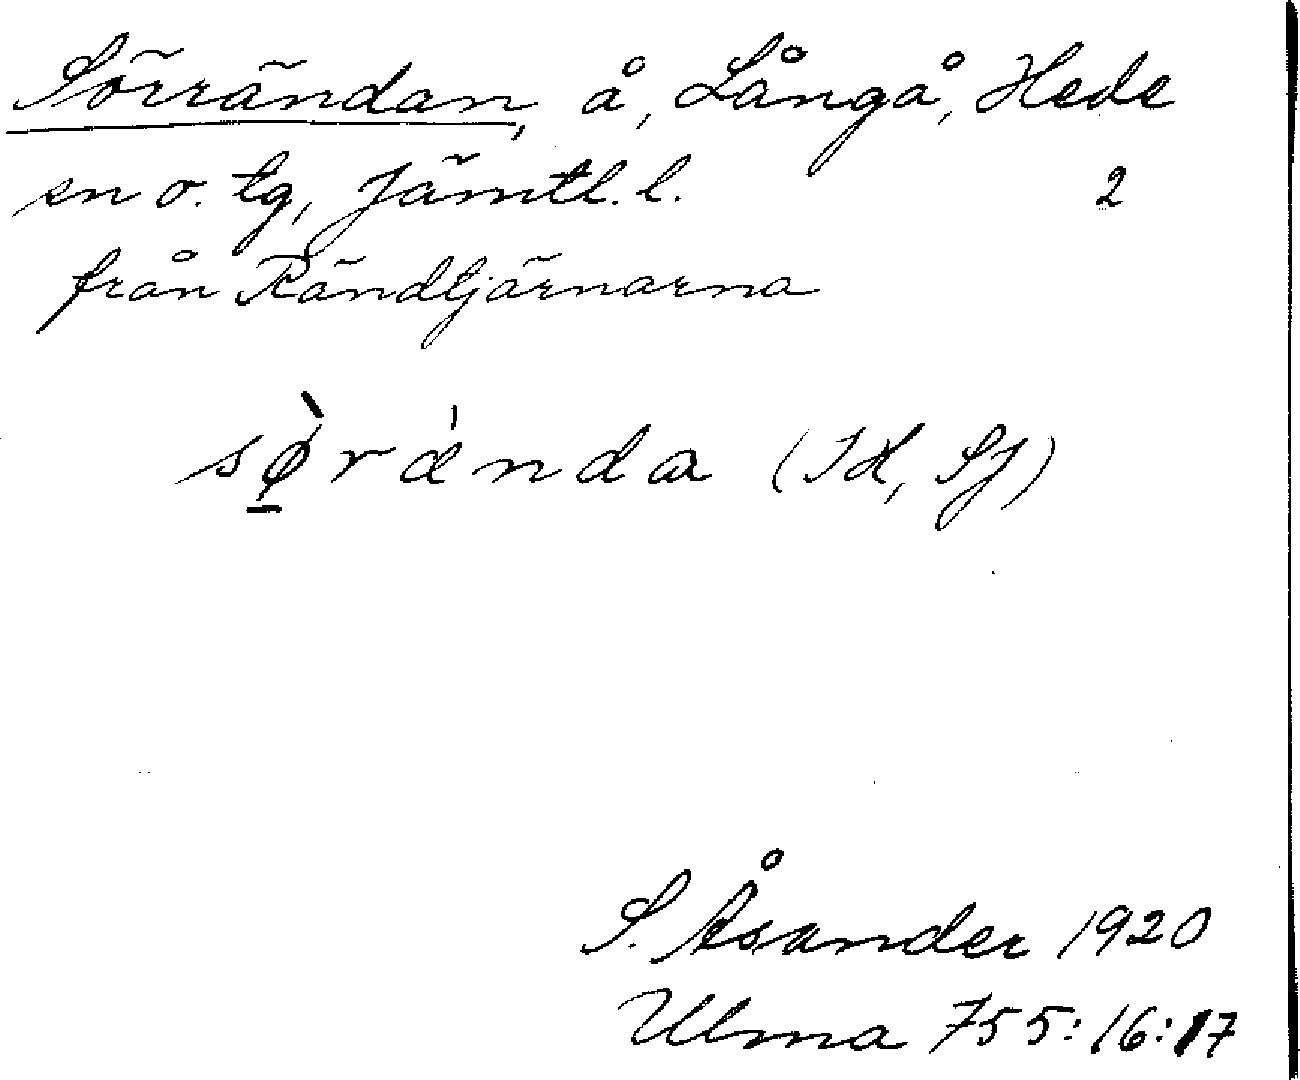 Sörrändan, å, Långå, Hede
sn o. tg, Jämtl. l. 2
från Rändtjärnarna
sø̠̀rända (IH, SJ)
S. Åsander 1920
Ulma 755:16:17